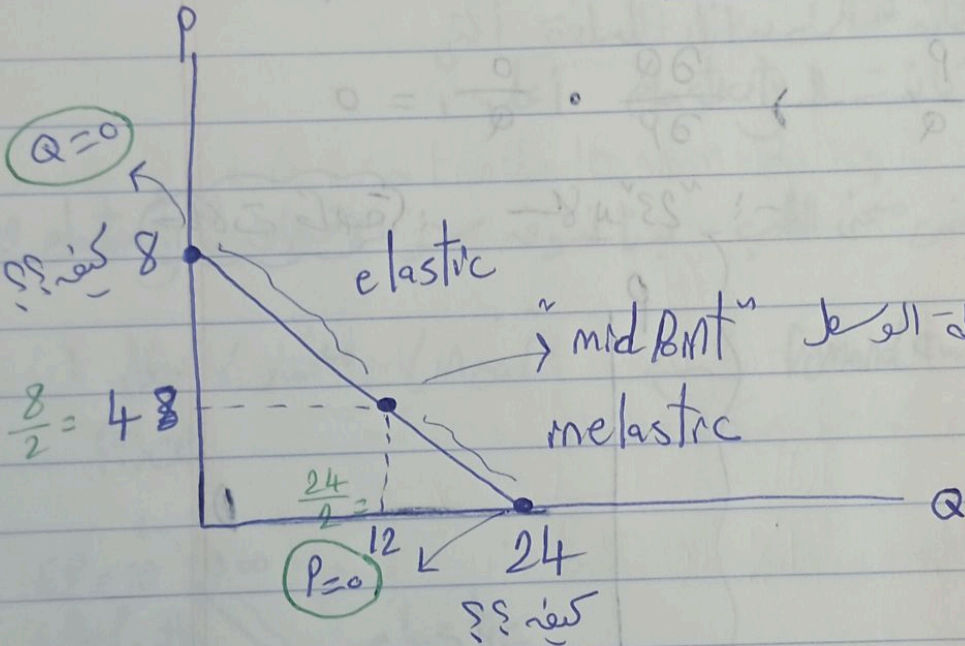 P
Q=0
8 كيف؟؟
elastic
"mid Point" الوسط
8/2 = 4
inelastic
24/2 =
12
24
Q
P=0
كيف؟؟